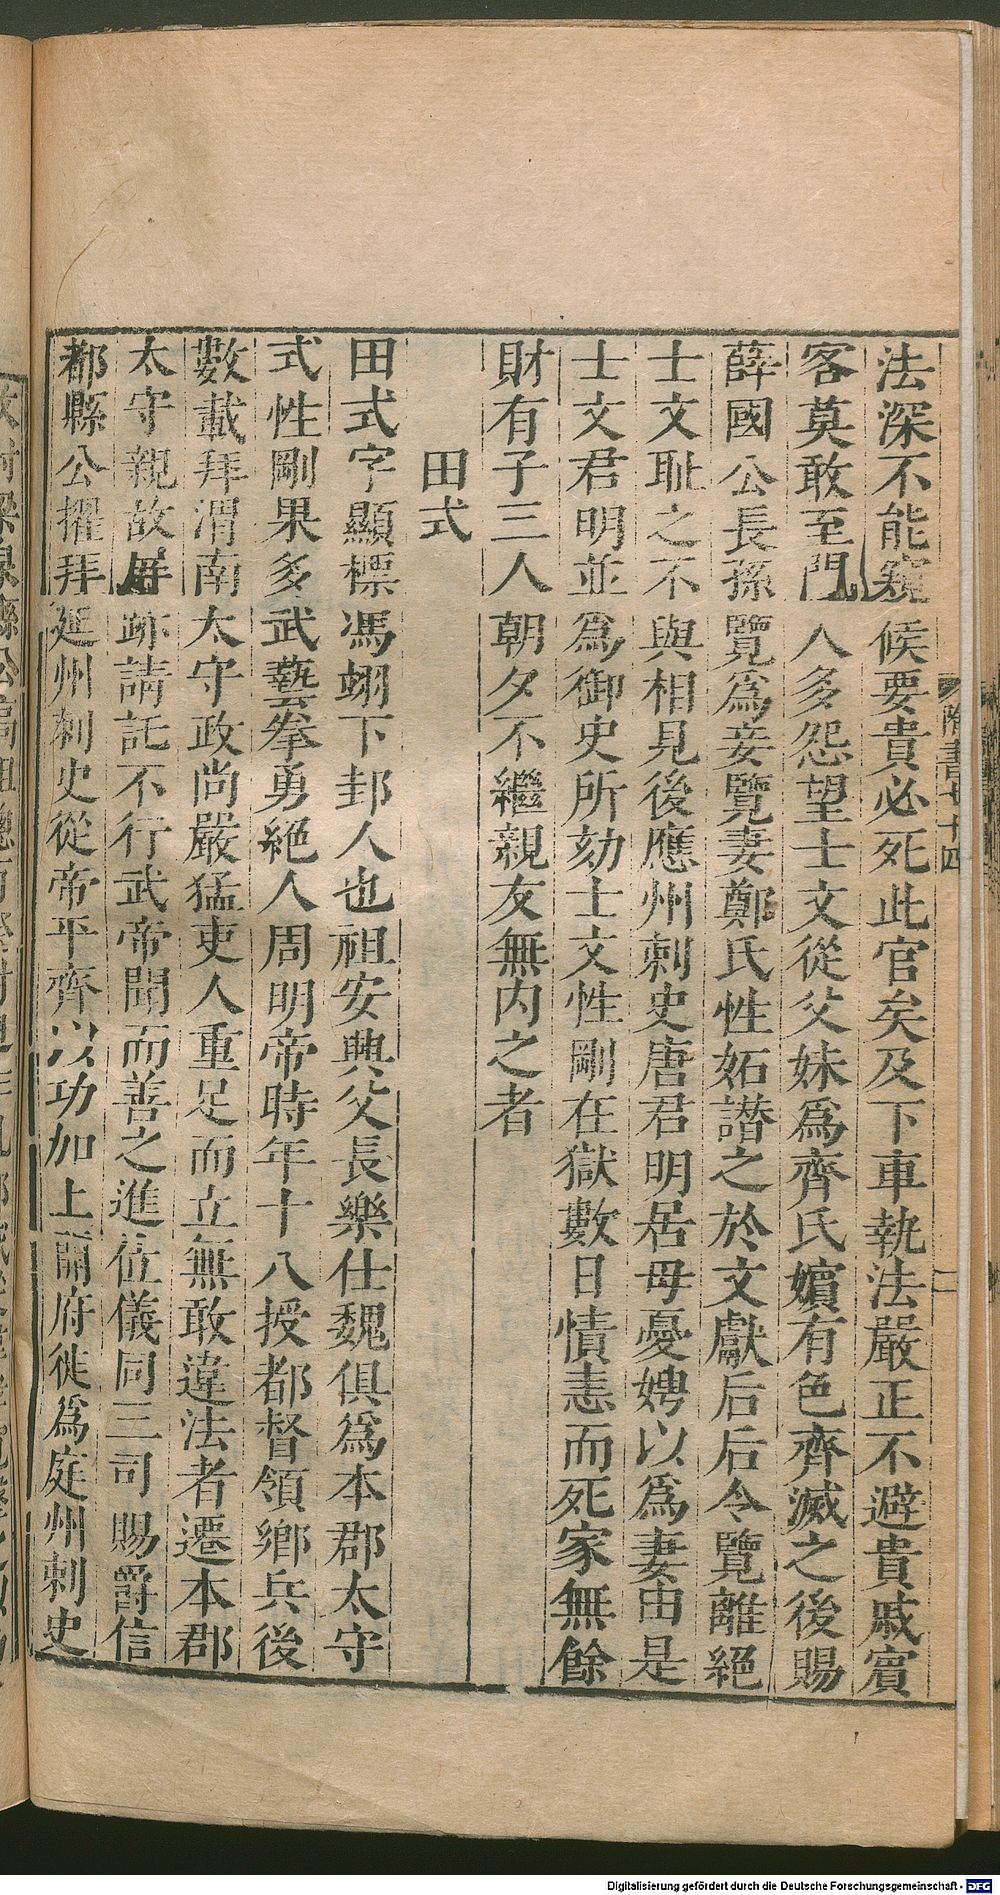 法深不能窺候要貴必死此官矣及下車執法嚴正不避貴戚賓
客莫敢至門人多怨望士文從父妹爲齊氏嬪有色齊滅之後賜
薛國公長孫覽爲妾覽妻鄭氏性妬譖之於文獻后后令覽離絕
士文耻之不與相見後應州刺史唐君明居母憂娉以爲妻由是
士文君明並爲御史所劾士文性剛在獄數日憤恚而死家無餘
財有子三人朝夕不繼親友無内之者
田式
田式字顯標馮翊下邽人也祖安興父長樂仕魏俱爲本郡太守
式性剛果多武藝拳勇絕人周明帝時年十八授都督領鄉兵後
數載拜渭南太守政尚嚴猛吏人重足而立無敢違法者遷本郡
太守親故屏跡請託不行武帝聞而善之進位儀同三司賜爵信
都縣公擢拜延州刺史從帝平齊以功加上開府徙爲庭州刺史
隋書七十四
二
Digitalisierung gefördert durch die Deutsche Forschungsgemeinschaft - DFG